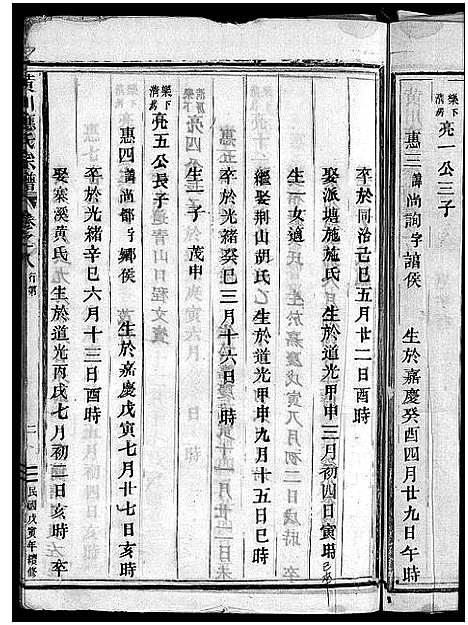 樂下清房亮一公三子
惠三諱尚詢字諮侯　生於嘉慶癸酉四月廿九日午時
卒於同治己巳五月廿二日酉時
娶派塘施施氏　生於道光甲申三月初四日寅時
生一女適
繼娶荆山胡氏　生於道光甲申九月十五日巳時
卒於光緒癸巳三月十六日
生一子　茂申
樂下清房亮五公長子
惠四諱尚鄉侯　生於嘉慶戊寅七月廿七日亥時
卒於光緒辛巳六月十三日酉時
娶寨溪黃氏　生於道光丙戌七月初二日亥時　卒
黃川應氏宗譜　卷之八　行第　二　民國戊寅年續修